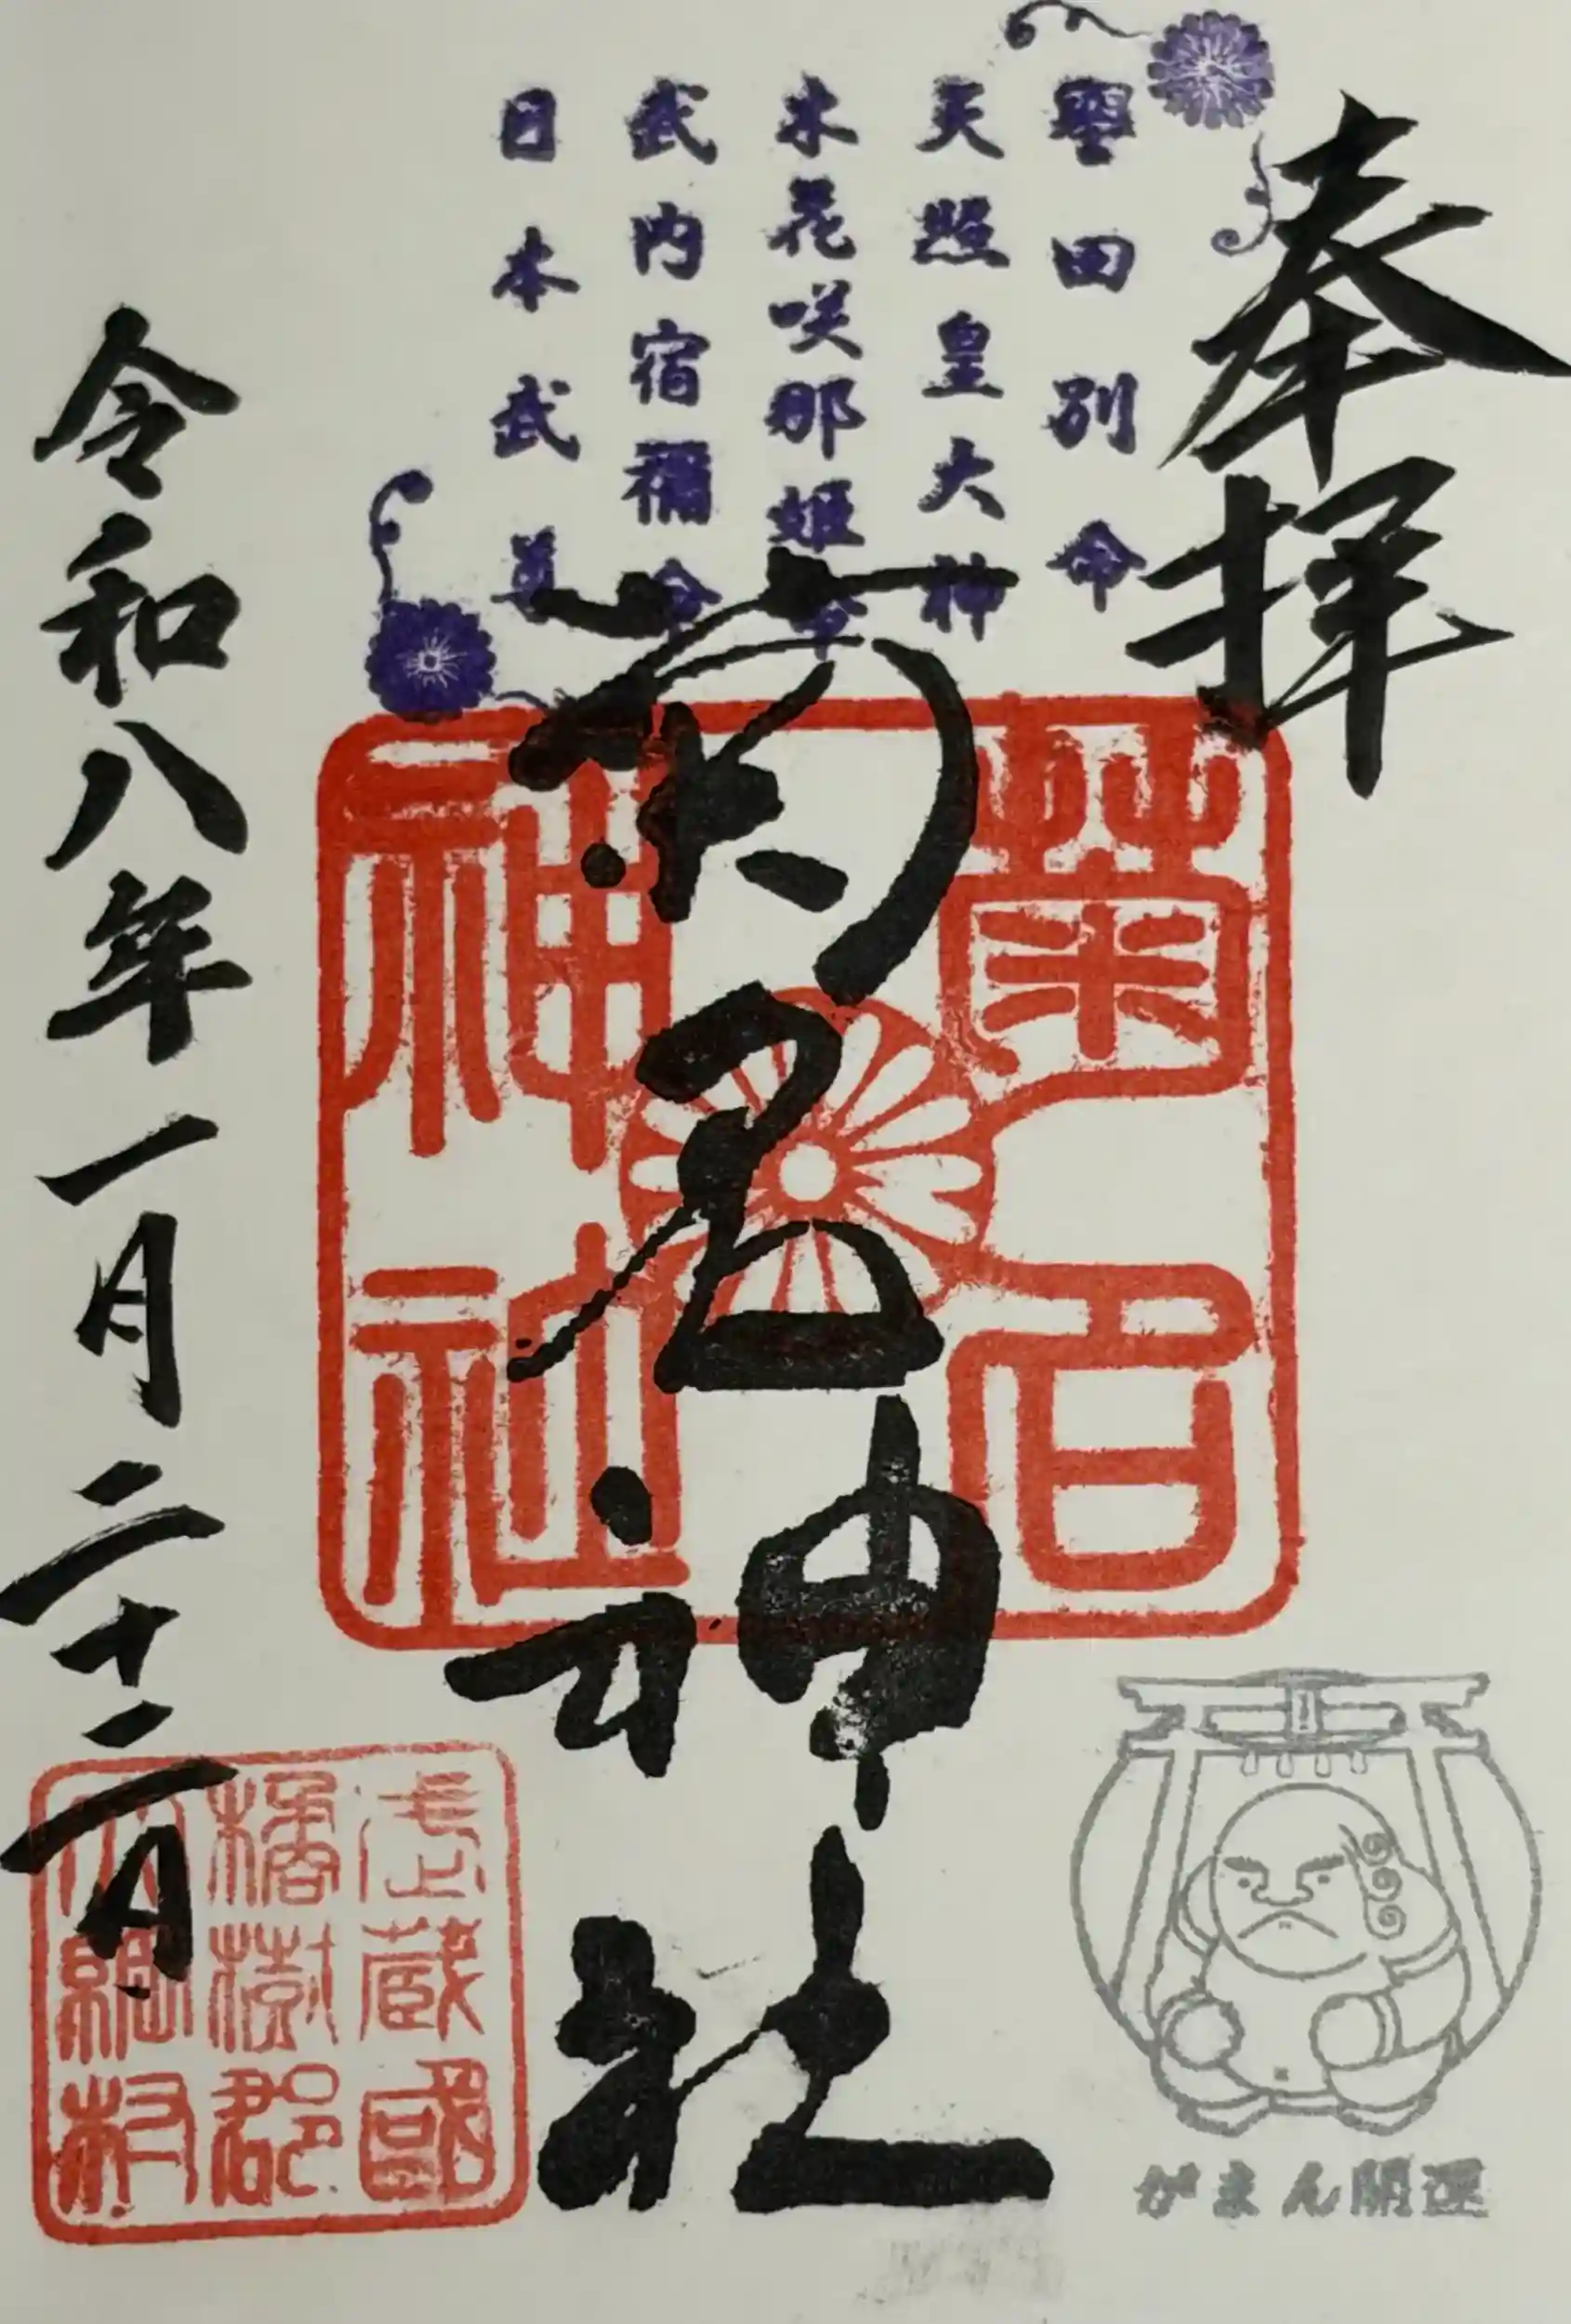 奉拝
譽田別命
天照皇大神
木花咲那姫命
武内宿禰命
日本武尊
菊名
神社
菊名神社
令和八年一月二十二日
武蔵國
橘樹郡
大綱村
がまん開運